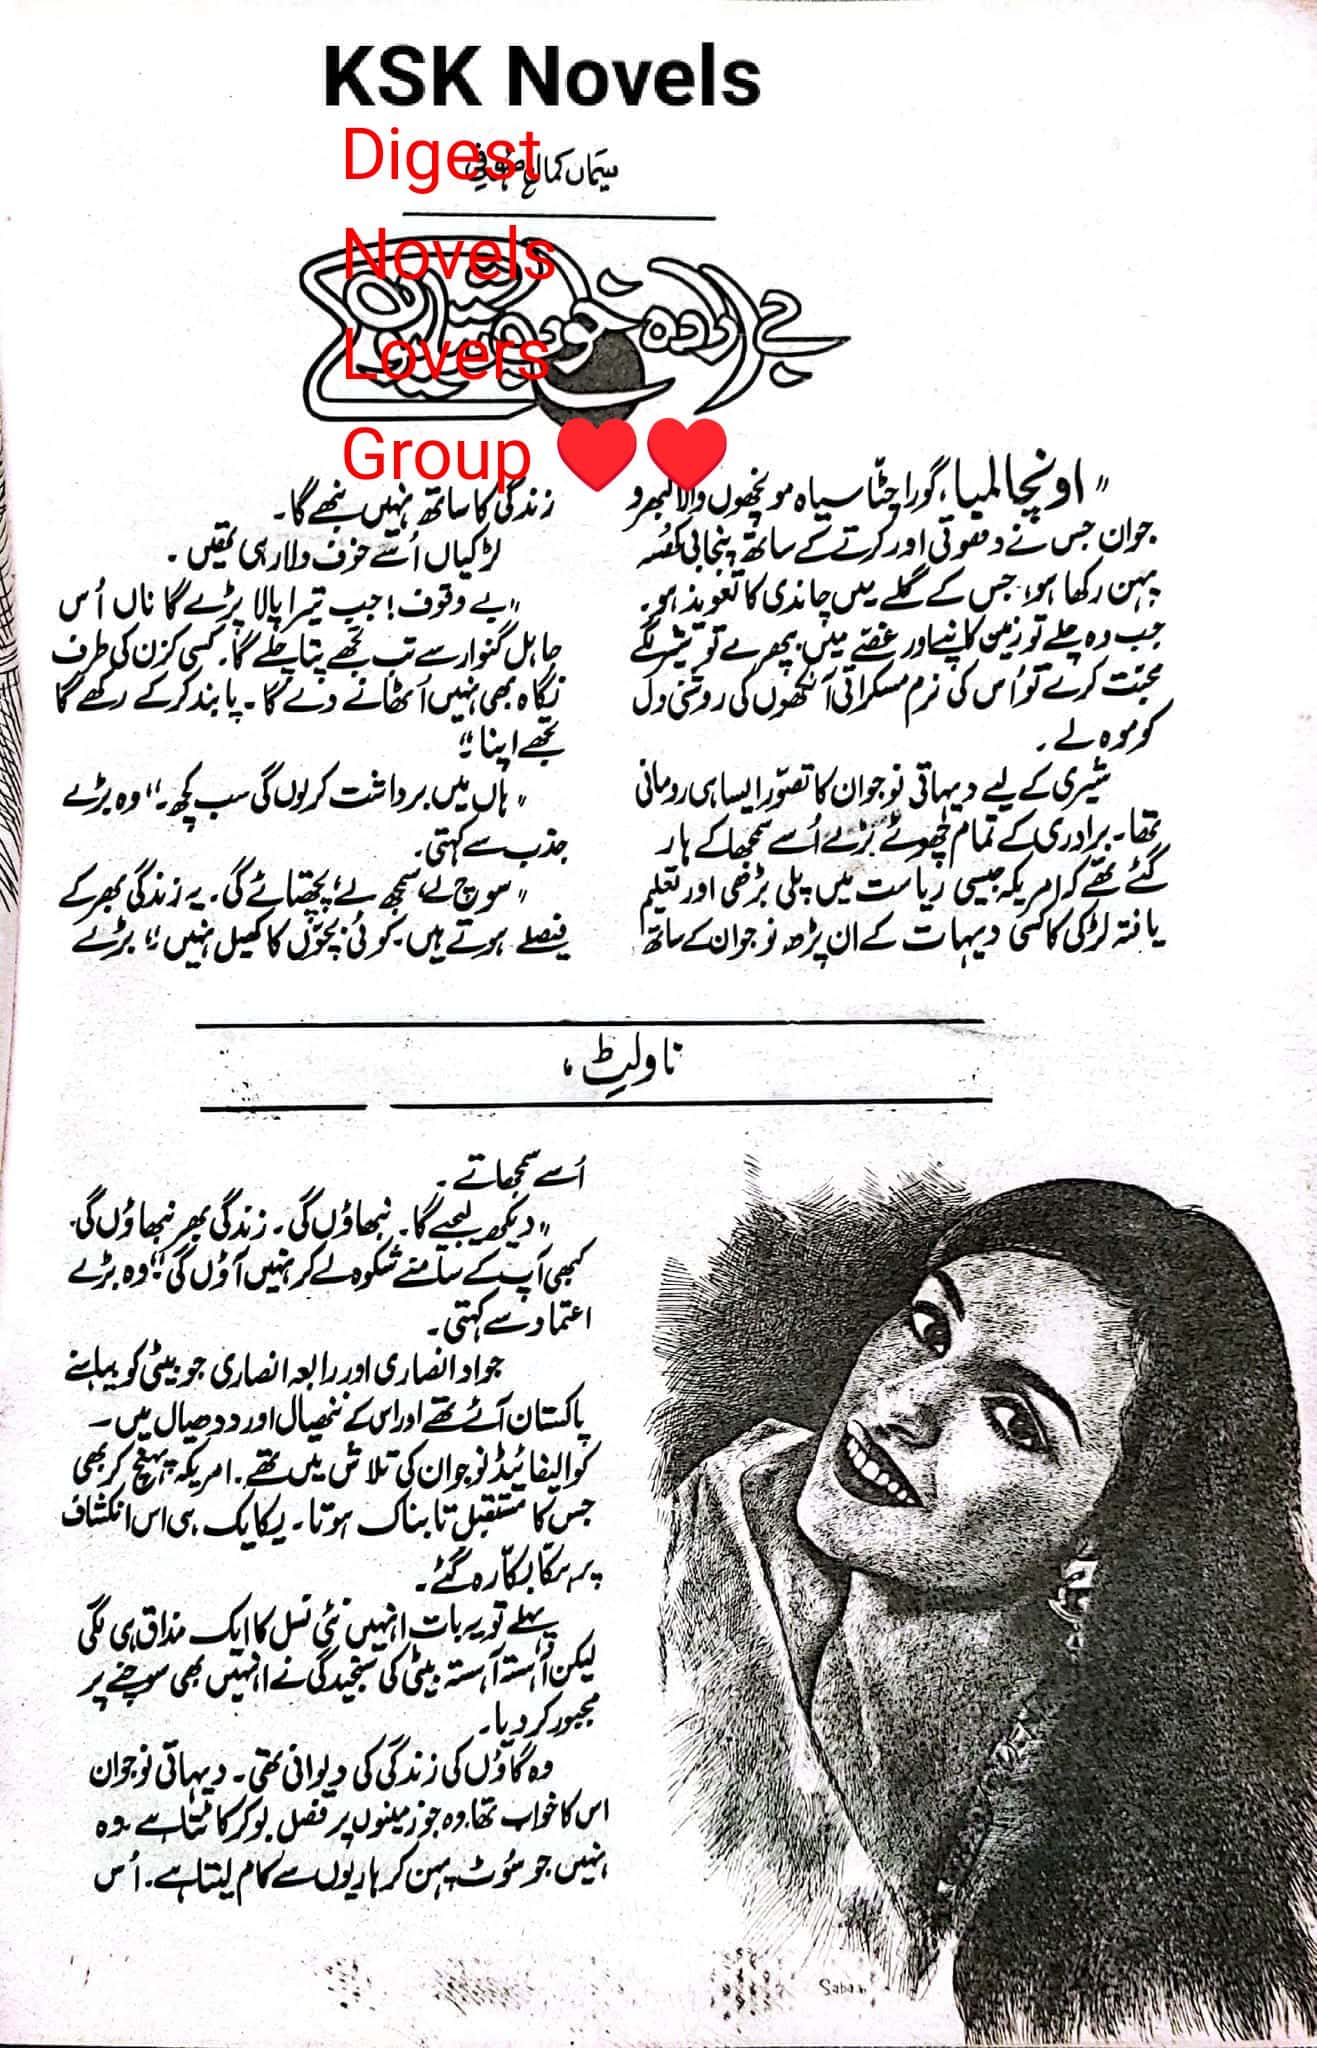 KSK Novels
Digest
Novels
Lovers
Group ❤️❤️
کمال
بے ارادہ
" اونچا لمبا، گورا چٹا سیاہ مونچھوں والا گبھرو
جوان جس نے دھوتی اور کرتے کے ساتھ پنجابی کھسہ
پہن رکھا ہو، جس کے گلے میں چاندی کا تعویذ ہو۔
جب وہ چلے تو زمین کانپے اور غصے میں بپھرے تو شیر لگے
محبّت کرے تو اُس کی نرم مسکراتی آنکھوں کی روشنی دل
کو موہ لے۔
شیری کے لیے دیہاتی نوجوان کا تصوّر ایسا ہی رومانی
تھا۔ برادری کے تمام چھوٹے بڑے اُسے سمجھا کے ہار
گئے تھے کہ امریکہ جیسی ریاست میں پلی بڑھی اور تعلیم
یافتہ لڑکی کا کسی دیہات کے ان پڑھ نوجوان کے ساتھ
زندگی کا ساتھ نہیں نبھے گا۔
لڑکیاں اُسے خوف دلا رہی تھیں۔
" بے وقوف! جب تیرا پالا پڑے گا ناں اُس
جاہل گنوار سے تب تجھے پتا چلے گا۔ کسی کزن کی طرف
نگاہ بھی نہیں اُٹھانے دے گا۔ پابند کر کے رکھے گا
تجھے اپنا "
" ہاں میں برداشت کر لوں گی سب کچھ۔" وہ بڑے
جذب سے کہتی۔
" سوچ لے، سمجھ لے، پچھتائے گی۔ یہ زندگی بھر کے
فیصلے ہوتے ہیں۔ کوئی بچّوں کا کھیل نہیں " بڑے
ناولیٹ،
اُسے سمجھاتے۔
" دیکھ لیجیے گا۔ نبھاؤں گی۔ زندگی بھر نبھاؤں گی۔
کبھی آپ کے سامنے شکوہ لے کر نہیں آؤں گی " وہ بڑے
اعتماد سے کہتی۔
جواد انصاری اور رابعہ انصاری جو بیٹی کو بیاہنے
پاکستان آئے تھے اور اس کے ننھیال اور ددھیال میں۔
کوالیفائیڈ نوجوان کی تلاش میں تھے۔ امریکہ پہنچ کر بھی
جس کا مستقبل تابناک ہوتا۔ یکایک ہی اس انکشاف
پر ہکّا بکّا رہ گئے۔
پہلے تو یہ بات انہیں نئی نسل کا ایک مذاق ہی لگی
لیکن آہستہ آہستہ بیٹی کی سنجیدگی نے انہیں بھی سوچنے پر
مجبور کر دیا۔
وہ گاؤں کی زندگی کی دیوانی تھی۔ دیہاتی نوجوان
اس کا خواب تھا۔ وہ جو زمینوں پر فصل بو کر کاٹتا ہے وہ
نہیں جو سُوٹ پہن کر ہاریوں سے کام لیتا ہے۔ اُس